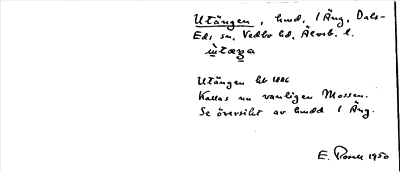 Utängen, hmd, 1 Äng, Dals-
Eds sn, Vedbo hd, Älvsb. l.
ùtæŋa
Utängen hk 1886
Kallas nu vanligen Mossen.
Se översikt av hmdd 1 Äng.
E. 1950